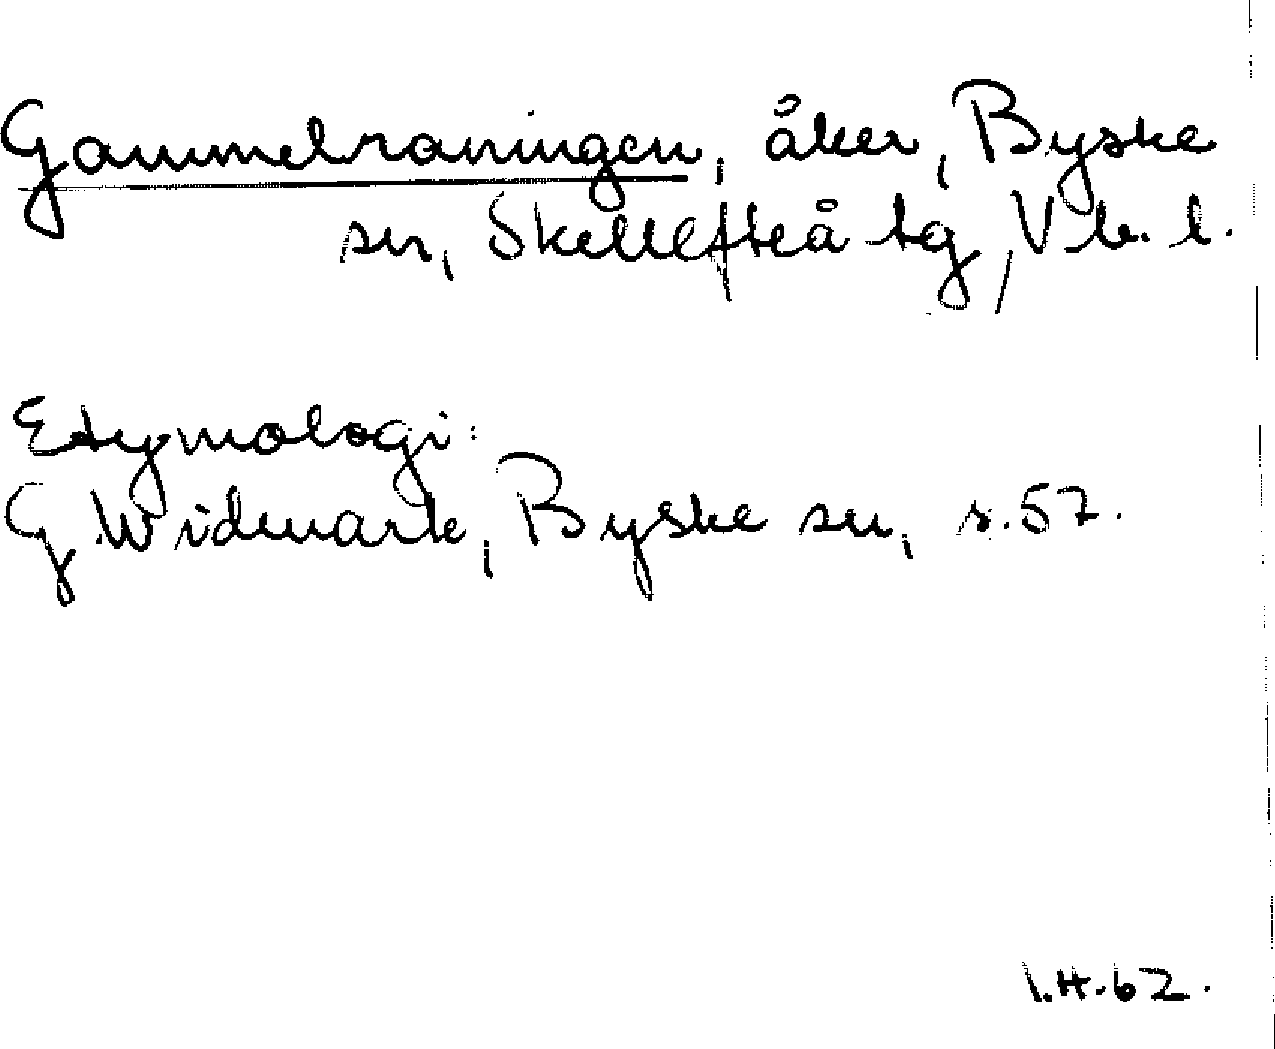 Gammelraningen, åker, Byske
sn, Skellefteå tg, Vb. l.
Etymologi:
G Widmark, Byske sn, s. 57.
I.H. 62.